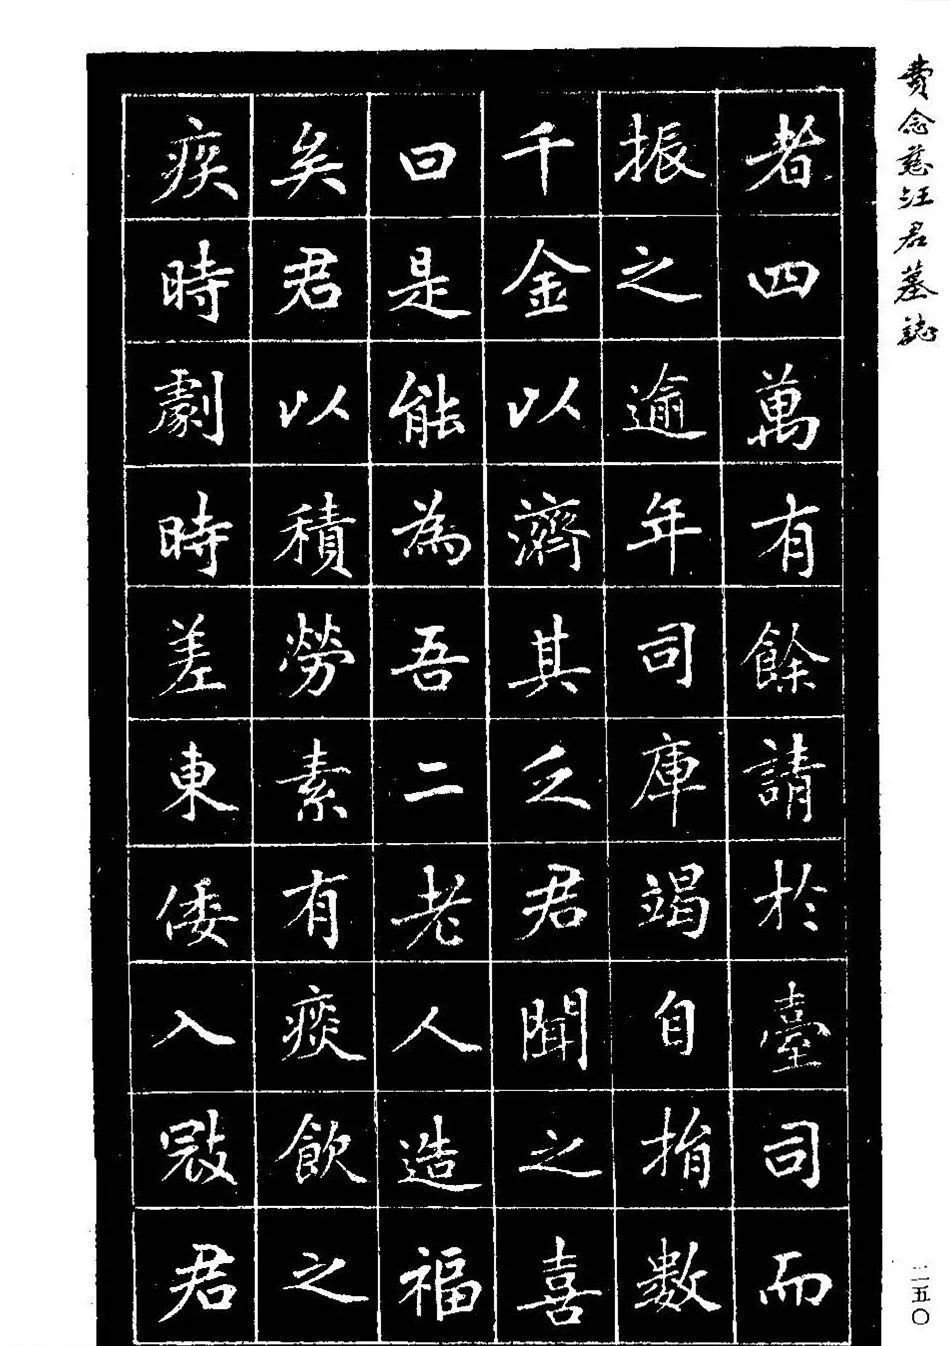 費念慈汪君墓誌
者四萬有餘請於臺司而
振之逾年司庫竭自捐數
千金以濟其乏君聞之喜
曰是能為吾二老人造福
矣君以積勞素有痰飲之
疾時劇時差東倭入寇君
二五〇